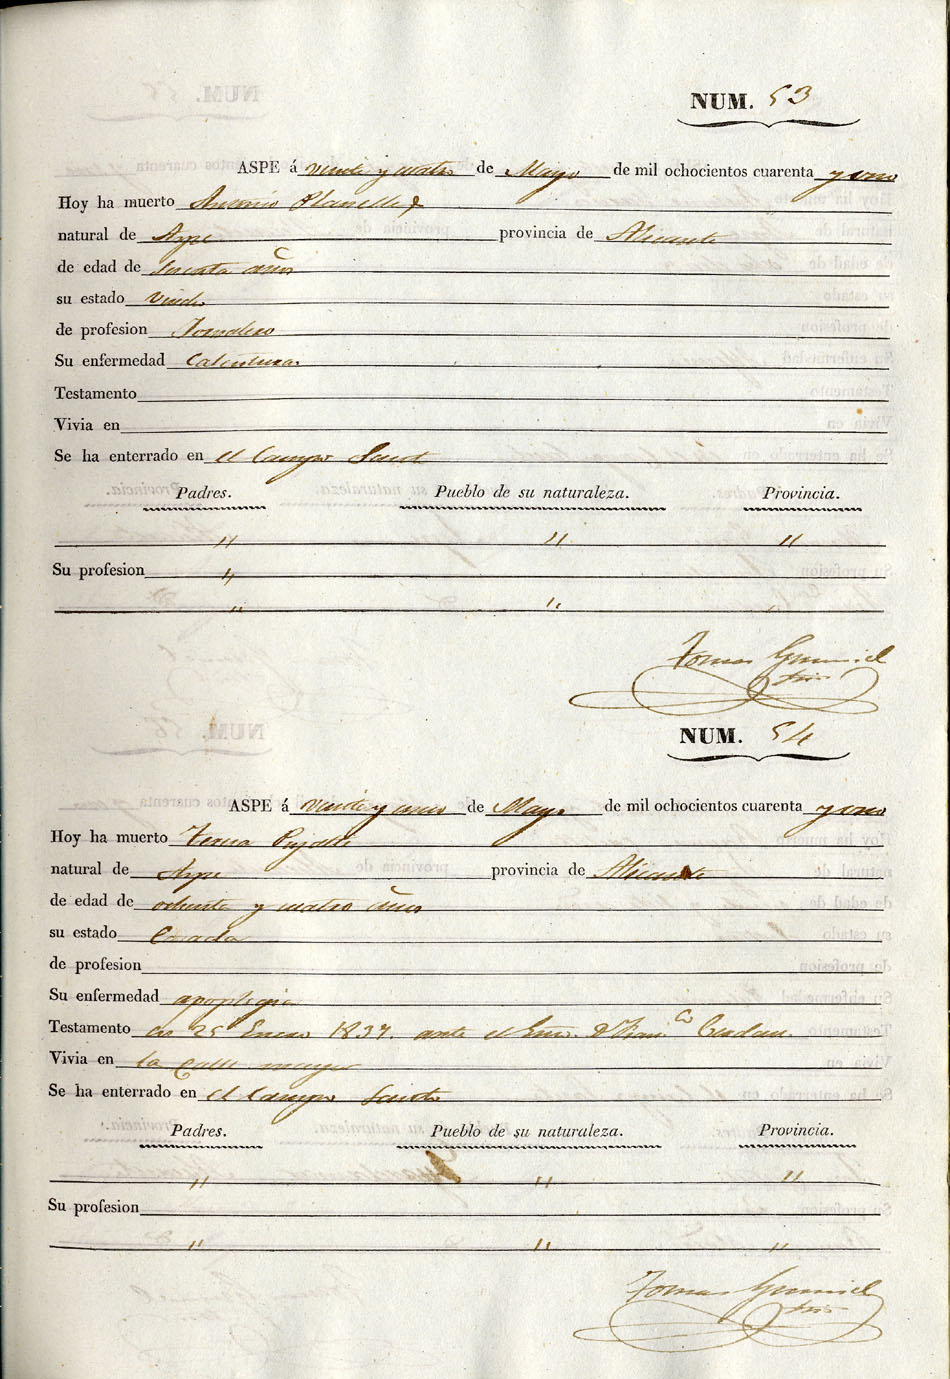 NUM. 53
ASPE á veinte y cuatro de Mayo de mil ochocientos cuarenta y uno
Hoy ha muerto Antonio Planelles
natural de Aspe provincia de Alicante
de edad de años
su estado Viudo
de profesion Jornalero
Su enfermedad Calenturas
Testamento
Vivia en
Se ha enterrado en el Campo Santo
Padres. Pueblo de su naturaleza. Provincia.
" " "
Su profesion "
" " "
Tomas
NUM. 54
ASPE á veinte y cinco de Mayo de mil ochocientos cuarenta y uno
Hoy ha muerto Teresa Pujalte
natural de Aspe provincia de Alicante
de edad de ochenta y cuatro años
su estado Casada
de profesion
Su enfermedad apoplegia
Testamento en 25 Enero 1837. ante el Esno. Dn. Franco
Vivia en la Calle mayor
Se ha enterrado en el Campo Santo
Padres. Pueblo de su naturaleza. Provincia.
" " "
Su profesion
" " "
Tomas